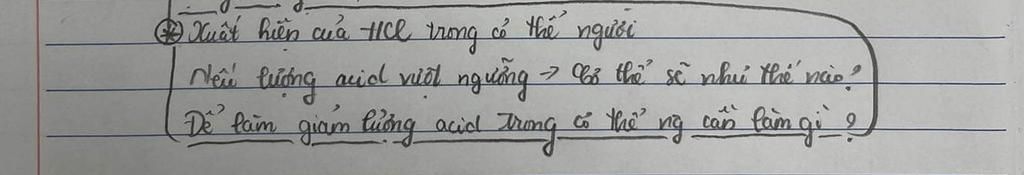 (*) Xuất hiện của HCl trong cơ thể người
Nếu lượng acid vượt ngưỡng → Cơ thể sẽ như thế nào?
Để làm giảm lượng acid trong cơ thể ng cần làm gì?